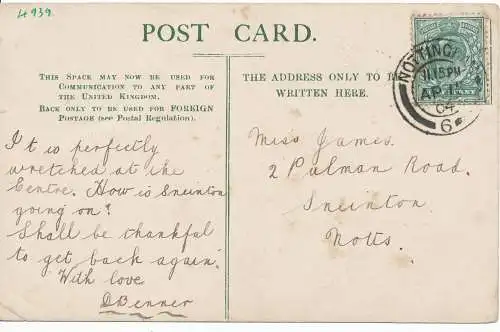 4939.
POST CARD.
THIS SPACE MAY NOW BE USED FOR
COMMUNICATION TO ANY PART OF
THE UNITED KINGDOM.
BACK ONLY TO BE USED FOR FOREIGN
POSTAGE (see Postal Regulation).
THE ADDRESS ONLY TO BE
WRITTEN HERE.
NOTTING
11.15 PM
AP 1
04
6
It is perfectly
wretched at the
Centre. How is Sneinton
going on?
Shall be thankful
to get back again.
With love
DBenner
Miss James.
2 Pulman Road.
Sneinton
Notts.